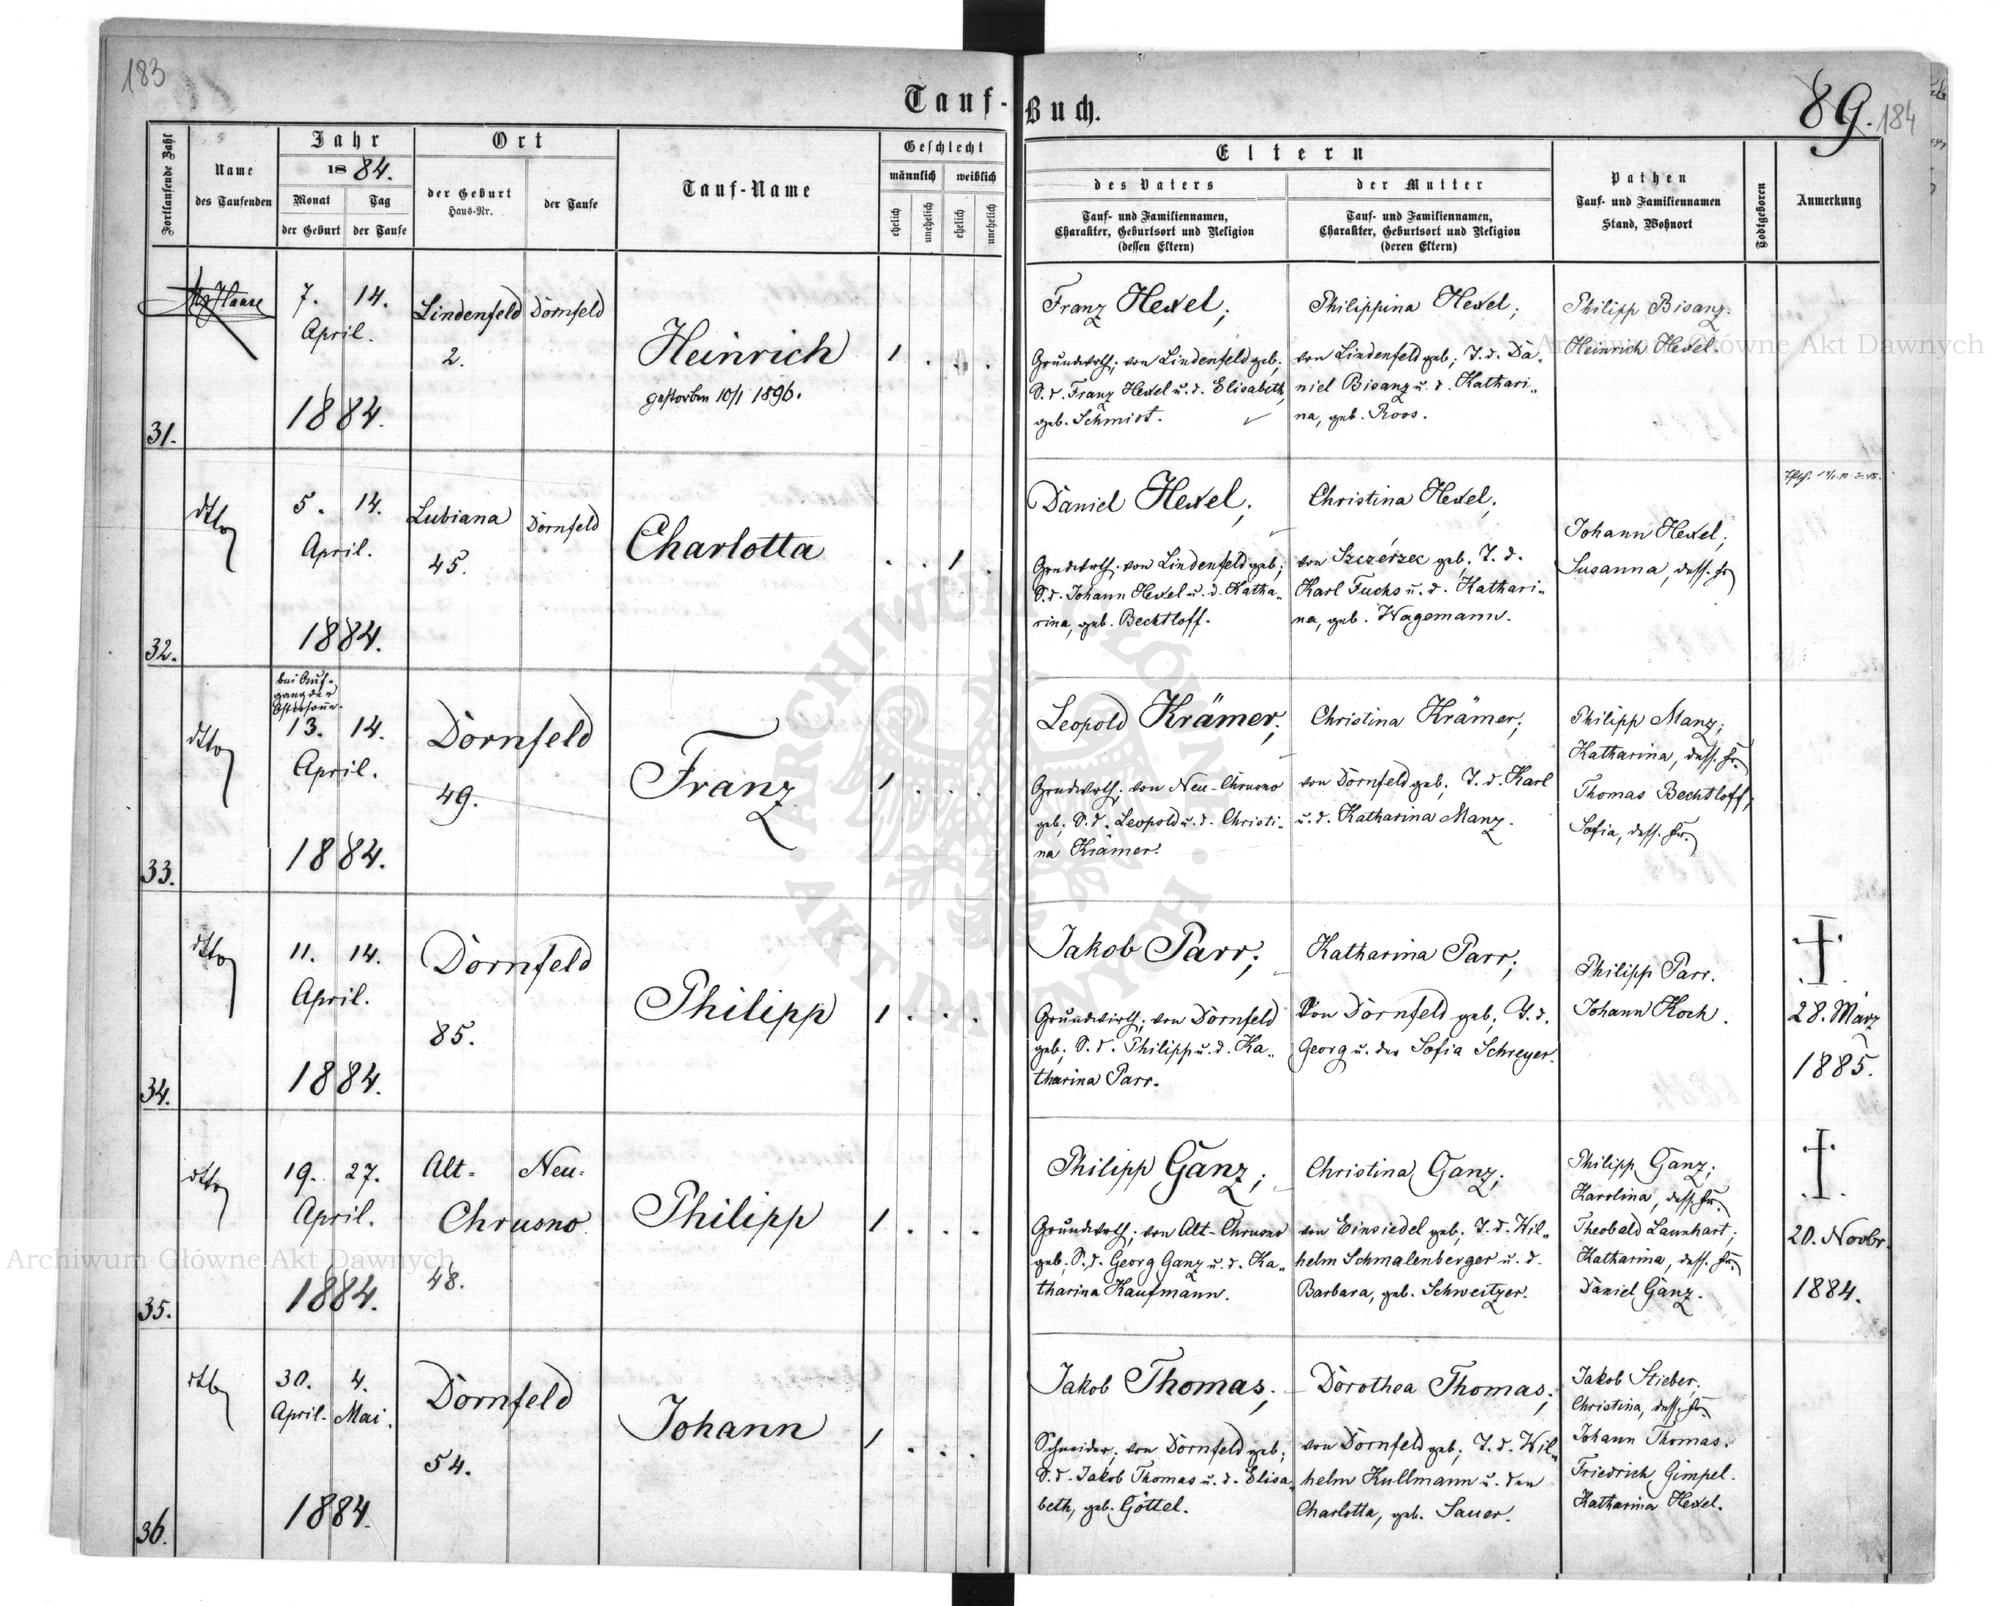 183
Tauf-Buch.
89. 184
Fortlaufende Zahl
Name
des Taufenden
Jahr
1884.
Monat
Tag
der Geburt
der Taufe
Ort
der Geburt
Haus-Nr.
der Taufe
Tauf-Name
Geschlecht
männlich
weiblich
ehelich
unehelich
ehelich
unehelich
Eltern
des Vaters
Tauf- und Familiennamen,
Charakter, Geburtsort und Religion
(dessen Eltern)
der Mutter
Tauf- und Familiennamen,
Charakter, Geburtsort und Religion
(deren Eltern)
Pathen
Tauf- und Familiennamen
Stand, Wohnort
Todtgeboren
Anmerkung
31.
7. 14.
April.
1884.
Lindenfeld
2.
Dornfeld
Heinrich
gestorben 10/1 1896.
1 . . .
Franz Hexel;
Grundwrth; von Lindenfeld geb;
S. d. Franz Hexel u. d. Elisabeth,
geb. Schmidt.
Philippina Hexel;
von Lindenfeld geb; T. d. Da-
niel Bisanz u. d. Kathari-
na, geb. Roos.
Philipp Bisanz.
Heinrich Hexel.
32.
dtto
5. 14.
April.
1884.
Lubiana
45.
Dornfeld
Charlotta
. . 1 .
Daniel Hexel;
Grndwrth; von Lindenfeld geb;
S. d. Johann Hexel u. d. Katha-
rina, geb. Bechtloff.
Christina Hexel;
von Szczérzec geb; T. d.
Karl Fuchs u. d. Kathari-
na, geb. Wagemann.
Johann Hexel;
Susanna, dess. Fr
33.
dtto
bei Auf-
gang der
13. 14.
April.
1884.
Dornfeld
49.
Franz
1 . . .
Leopold Krämer;
Grndwrth; von Neu-Chrusno
geb; S. d. Leopold u. d. Christi-
na Krämer.
Christina Krämer;
von Dornfeld geb; T. d. Karl
u. d. Katharina Manz.
Philipp Manz;
Katharina, dess. Fr.
Thomas Bechtloff;
Sofia, dess. Fr.
34.
dtto
11. 14.
April.
1884.
Dornfeld
85.
Philipp
1 . . .
Jakob Parr;
Grundwirth; von Dornfeld
geb; S. d. Philipp u. d. Ka-
tharina Parr.
Katharina Parr;
Von Dornfeld geb; T. d.
Georg u. der Sofia Schreyer.
Philipp Parr.
Johann Koch.
28. März
1885.
35.
dtto
19. 27.
April.
1884.
Alt- Neu-
Chrusno
48.
Philipp
1 . . .
Philipp Ganz;
Grundwrth; von Alt-Chrusno
geb. S. d. Georg Ganz u. d. Ka-
tharina Kaufmann.
Christina Ganz;
von Einsiedel geb; T. d. Wil-
helm Schmalenberger u. d.
Barbara, geb. Schweitzer.
Philipp Ganz;
Karolina, dess. Fr.
Theobald Launhart;
Katharina, dess. Fr.
Daniel Ganz.
20. Novbr.
1884.
36.
dtto
30. 4.
April. Mai.
1884.
Dornfeld
54.
Johann
1 . . .
Jakob Thomas;
Schneider; von Dornfeld geb;
S. d. Jakob Thomas u. d. Elisa-
beth, geb. Göttel.
Dorothea Thomas;
von Dornfeld geb; T. d. Wil-
helm Kullmann u. der
Charlotta, geb. Sauer.
Jakob Stieber;
Christina, dess. Fr.
Johann Thomas.
Friedrich Gimpel.
Katharina Hexel.
Archiwum Główne Akt Dawnych
Archiwum Główne Akt Dawnych
ARCHIWUM GŁÓWNE AKT DAWNYCH